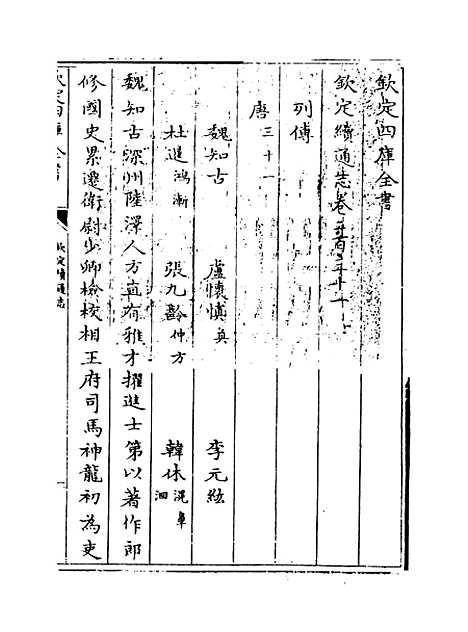 欽定四庫全書
欽定續通志卷二百三十一
列傳
唐三十一
魏知古 盧懷慎奐 李元紘
杜暹鴻漸 張九齡仲方 韓休滉臯洄
魏知古深州陸澤人方直有雅才擢進士第以著作郎
修國史累遷衛尉少卿檢校相王府司馬神龍初為吏
欽定四庫全書
欽定續通志
一